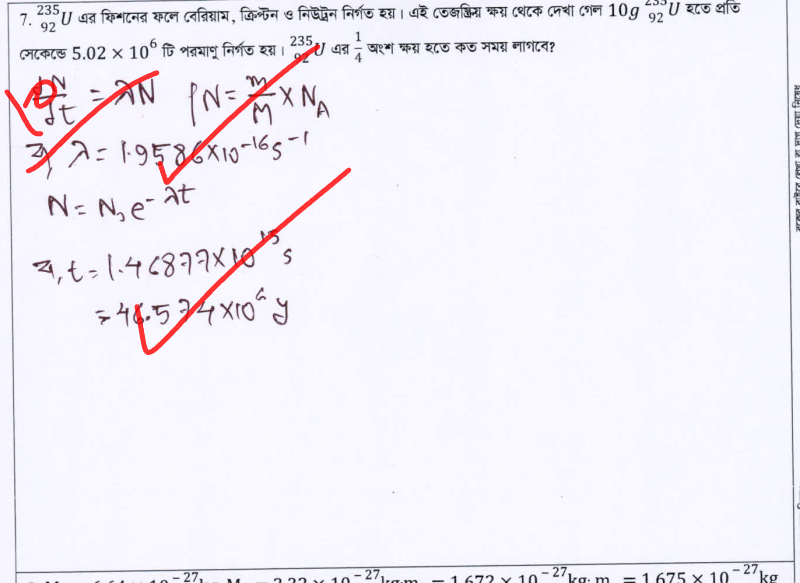 7. ²³⁵₉₂U এর ফিশনের ফলে বেরিয়াম, ক্রিপ্টন ও নিউট্রন নির্গত হয়। এই তেজস্ক্রিয় ক্ষয় থেকে দেখা গেল 10g ²³⁵₉₂U হতে প্রতি
সেকেন্ডে 5.02 × 10⁶ টি পরমাণু নির্গত হয়। ²³⁵₉₂U এর 1/4 অংশ ক্ষয় হতে কত সময় লাগবে?
10
dN/dt = λN | N = m/M × N_A
বা, λ = 1.9586×10⁻¹⁶ s⁻¹
N = N₀e^-λt
বা, t = 1.46877×10¹⁵ s
= 46.574×10⁶ y
10⁻²⁷kg.m = 1.672 × 10⁻²⁷kg. m = 1.675 × 10⁻²⁷kg